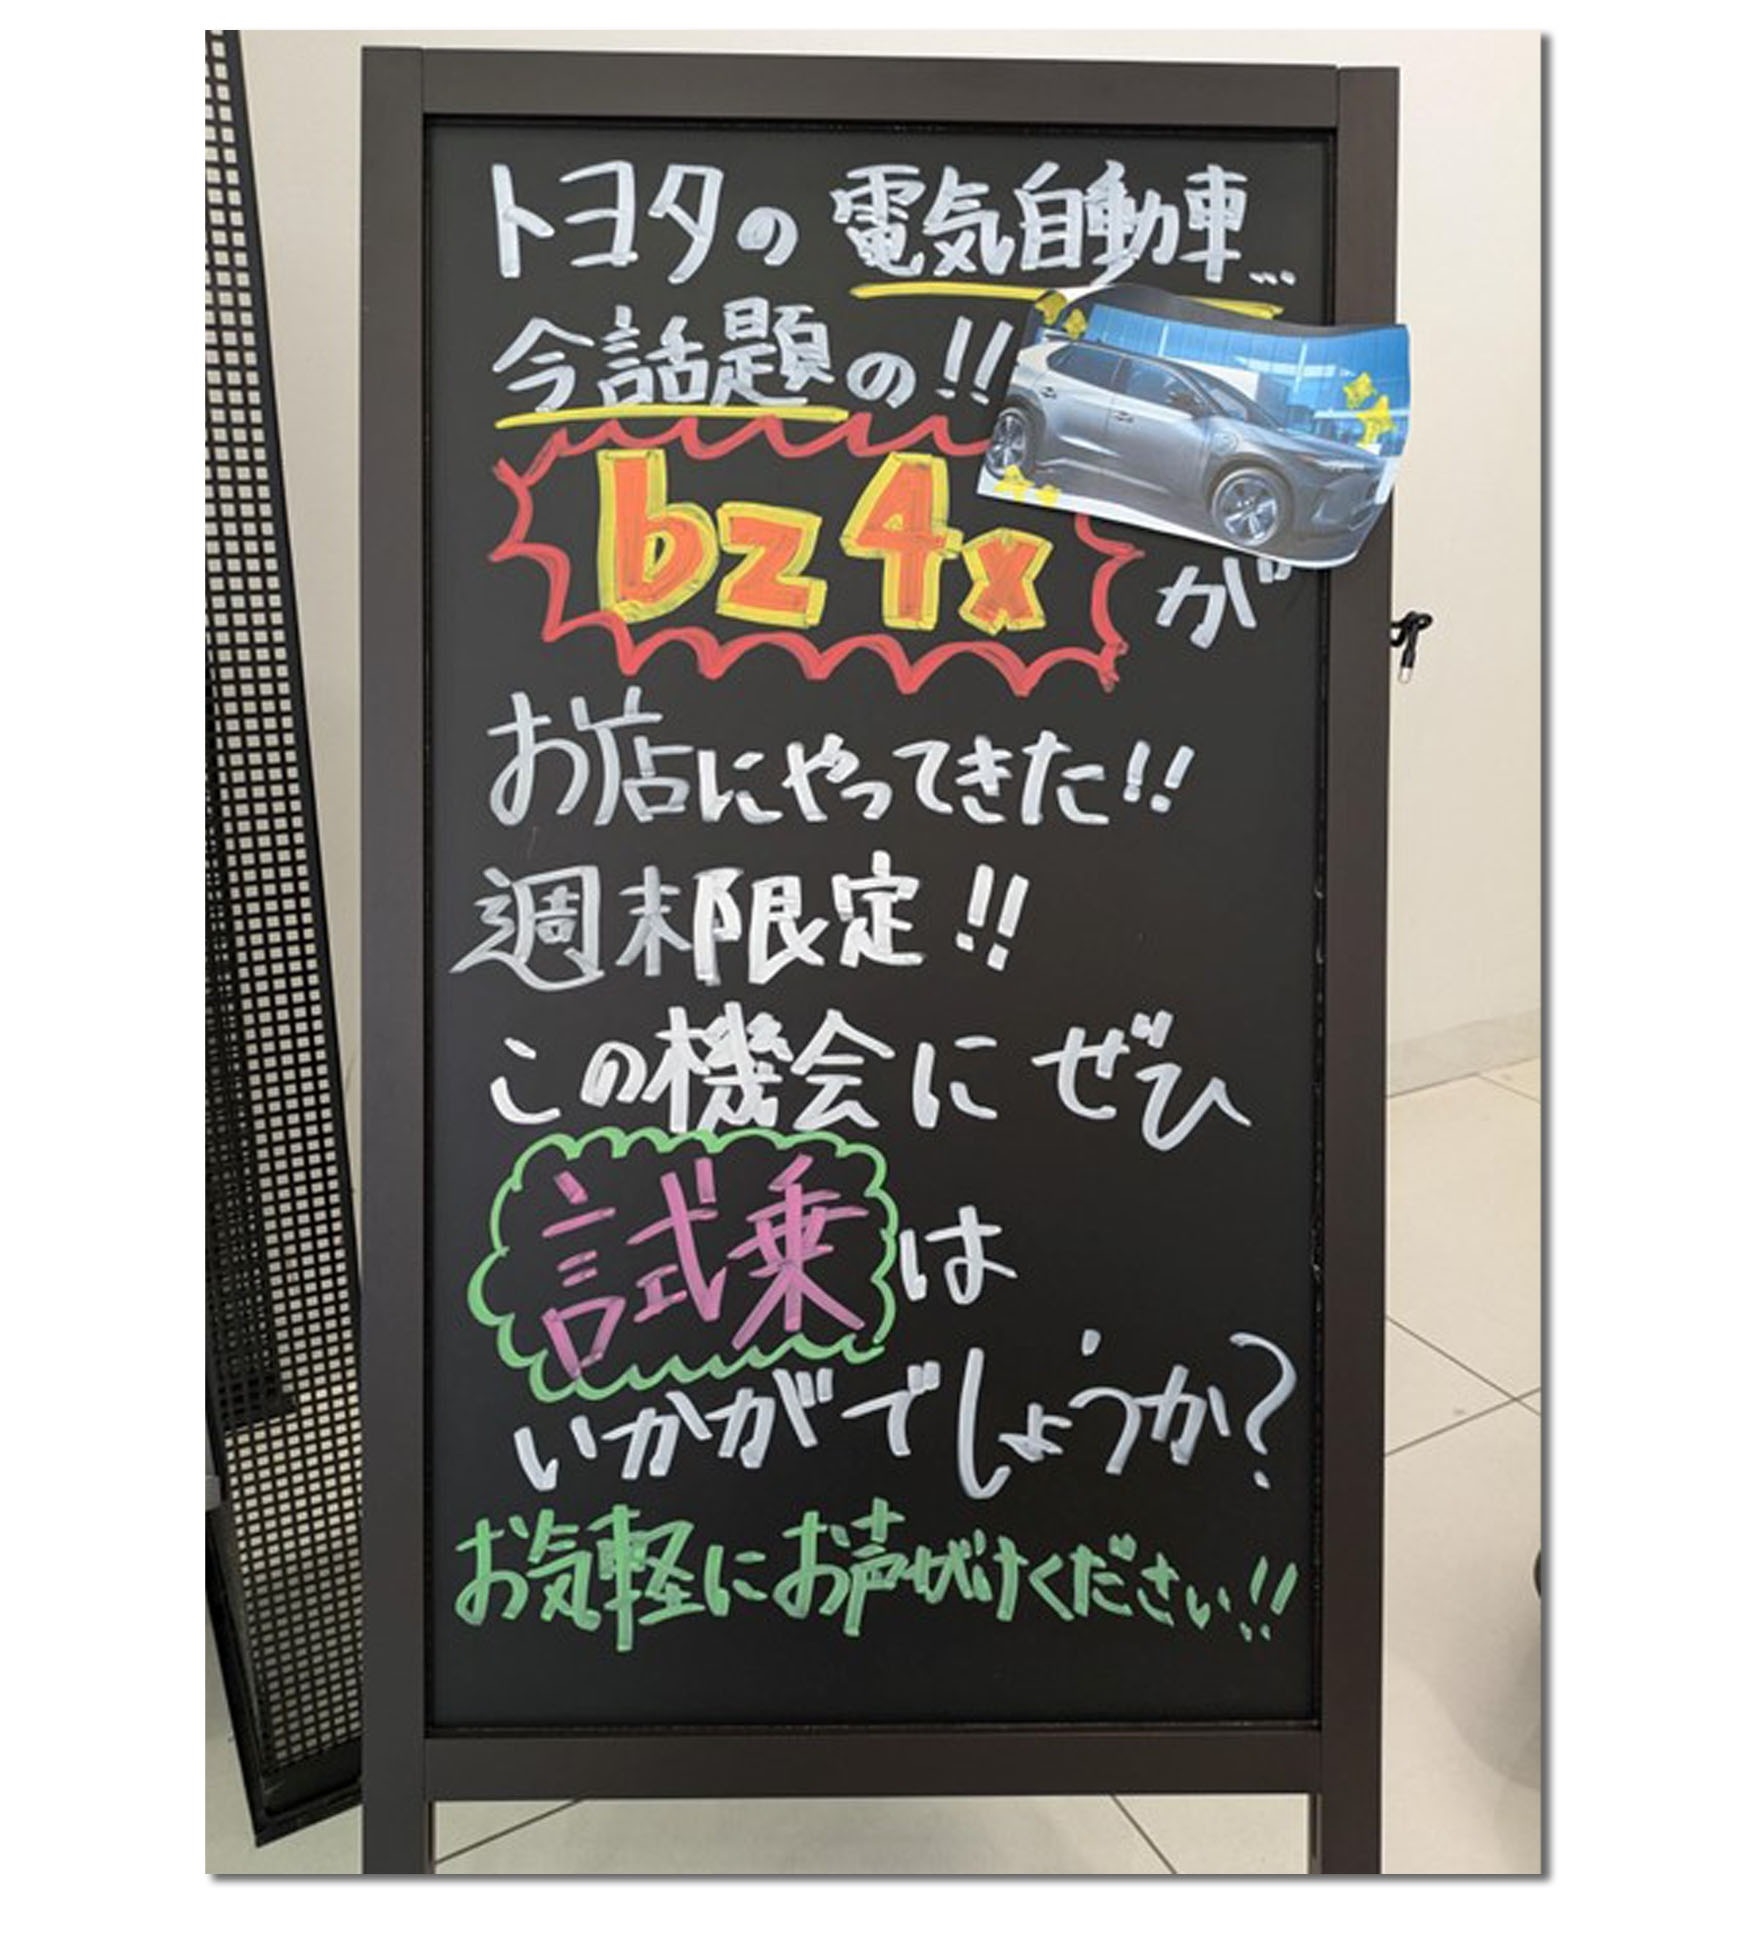 トヨタの電気自動車...
今話題の!!
bz4xが
お店にやってきた!!
週末限定!!
この機会にぜひ
試乗は
いかがでしょうか?
お気軽にお声がけください!!